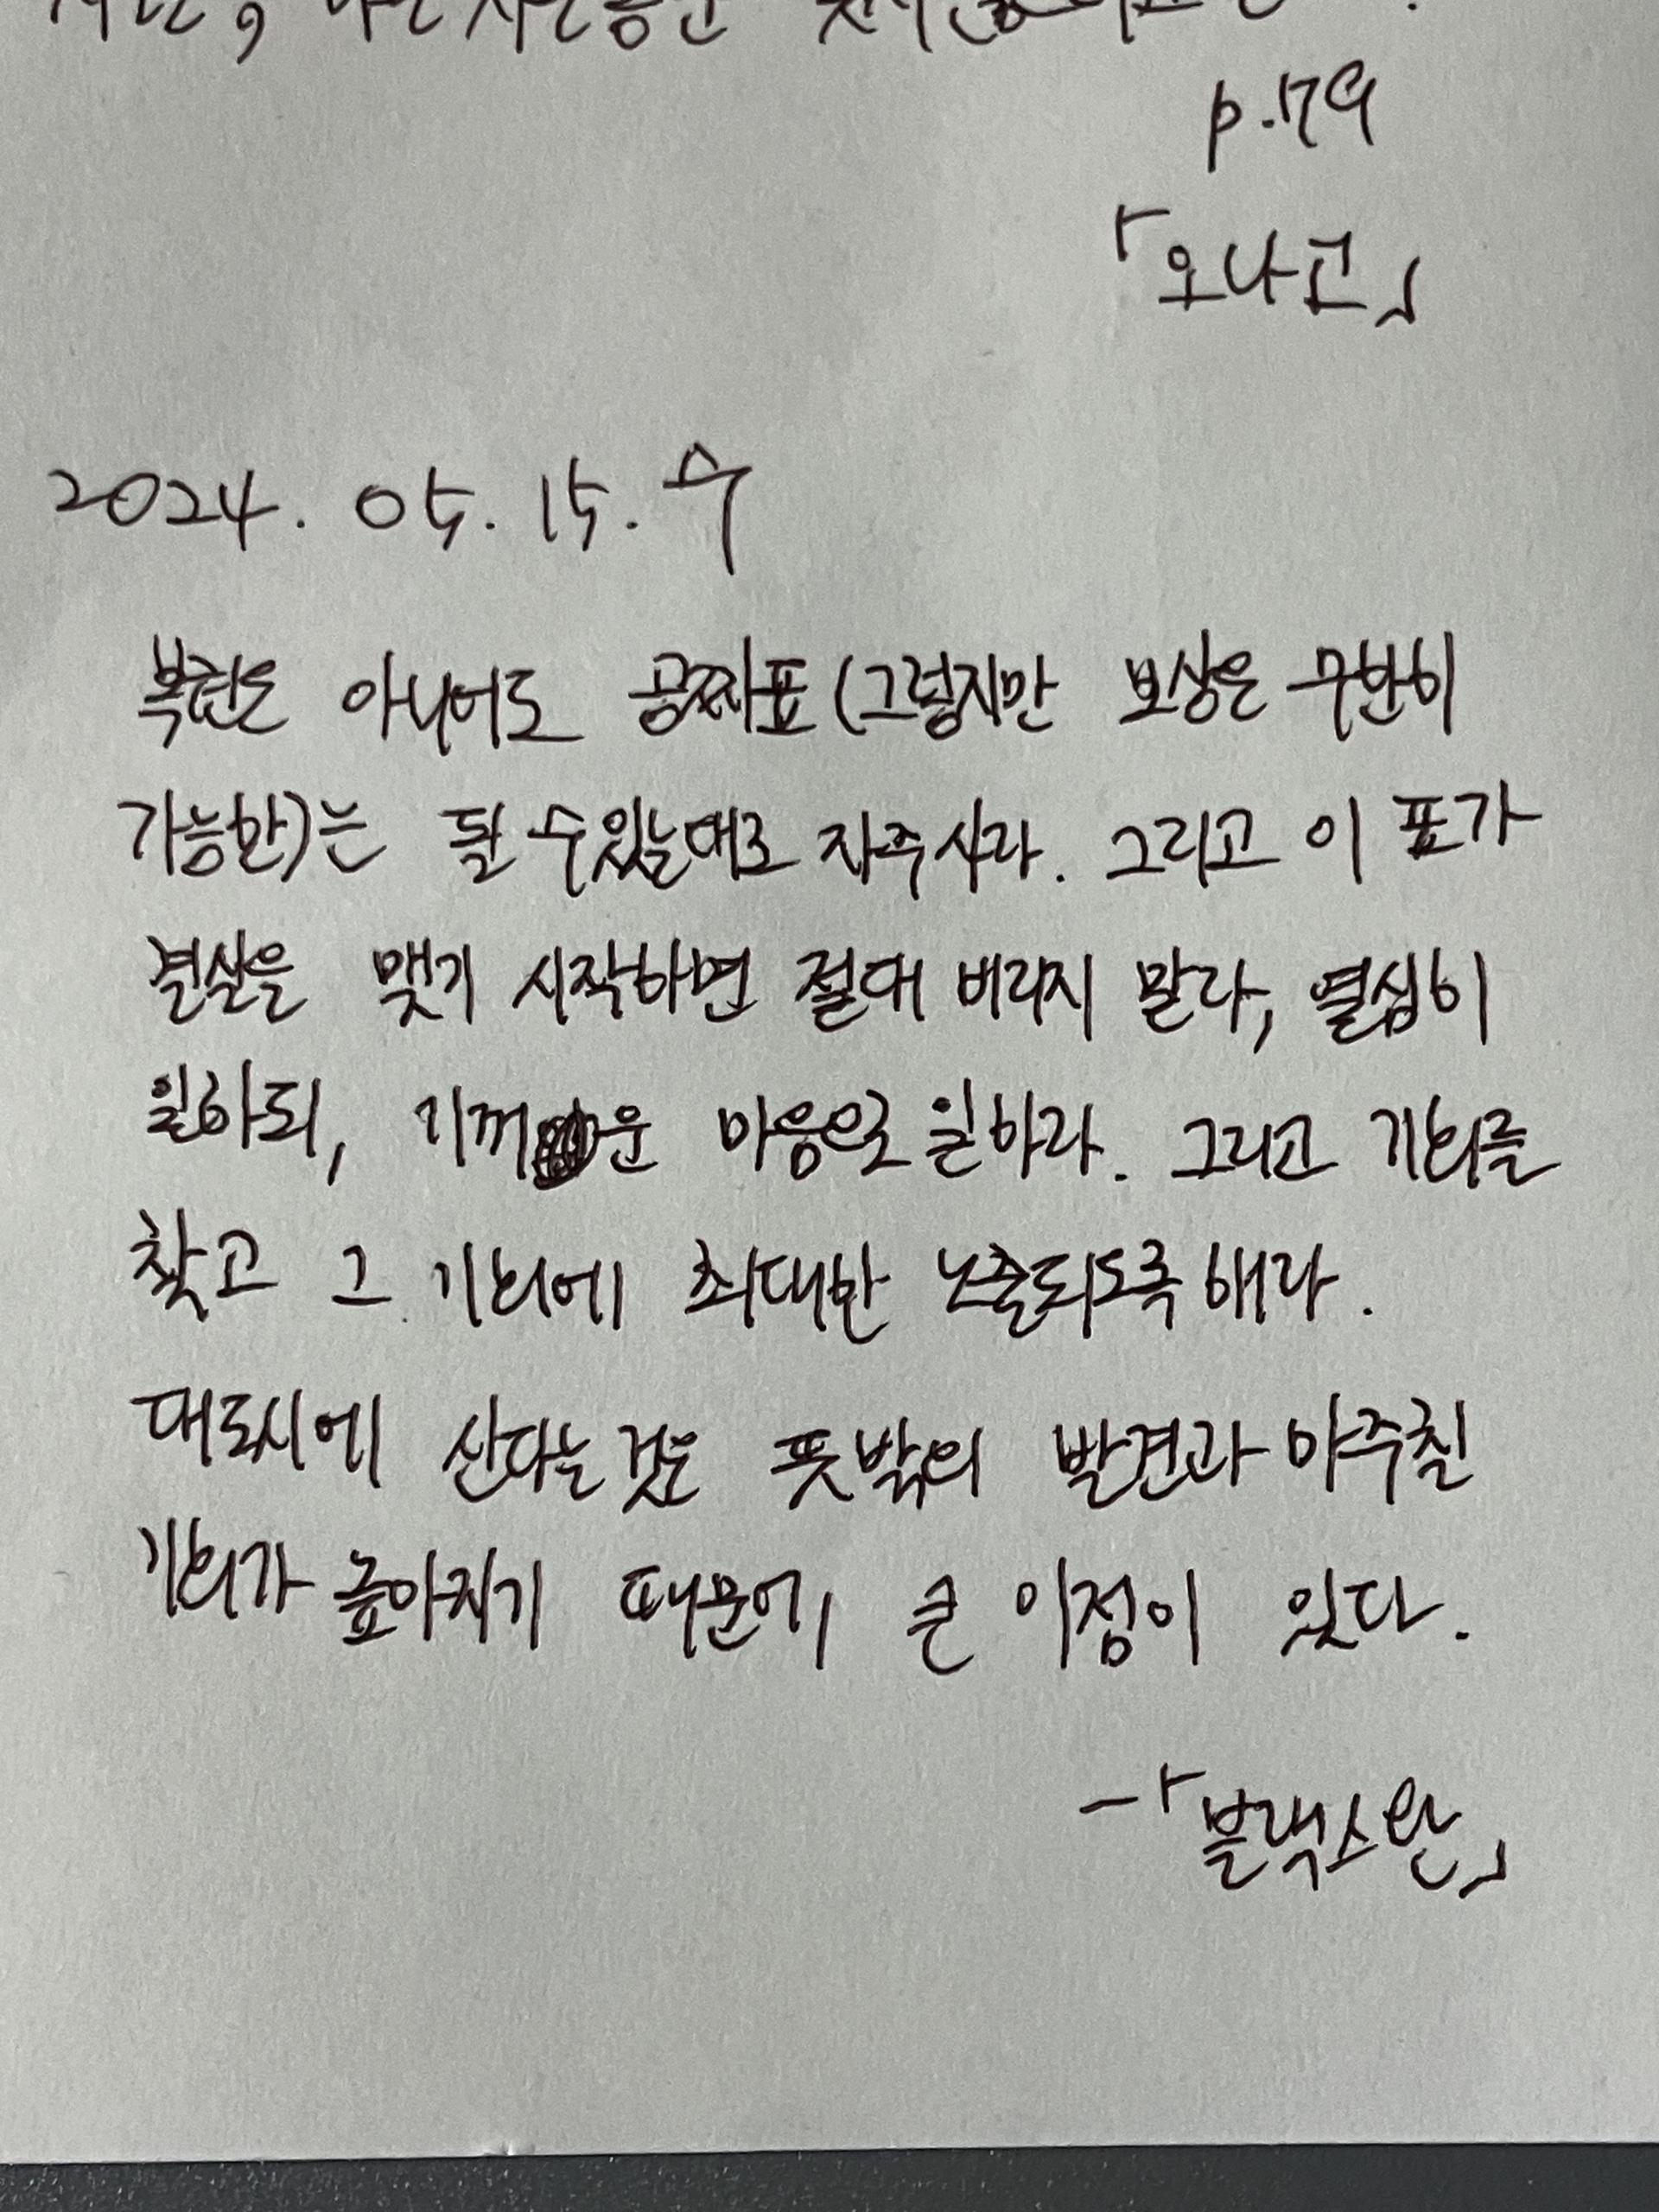 p.179
「오나고」
2024. 05. 15. 수
복권은 아니어도 공짜표(그렇지만 보상은 무한히
가능한)는 될 수 있는대로 자주 사라. 그리고 이 표가
결실을 맺기 시작하면 절대 버리지 말라, 열심히
일하되, 기꺼운 마음으로 일하라. 그리고 기회를
찾고 그 기회에 최대한 노출되도록 해라.
대도시에 산다는 것은 뜻밖의 발견과 마주칠
기회가 높아지기 때문에 큰 이점이 있다.
-「블랙스완」